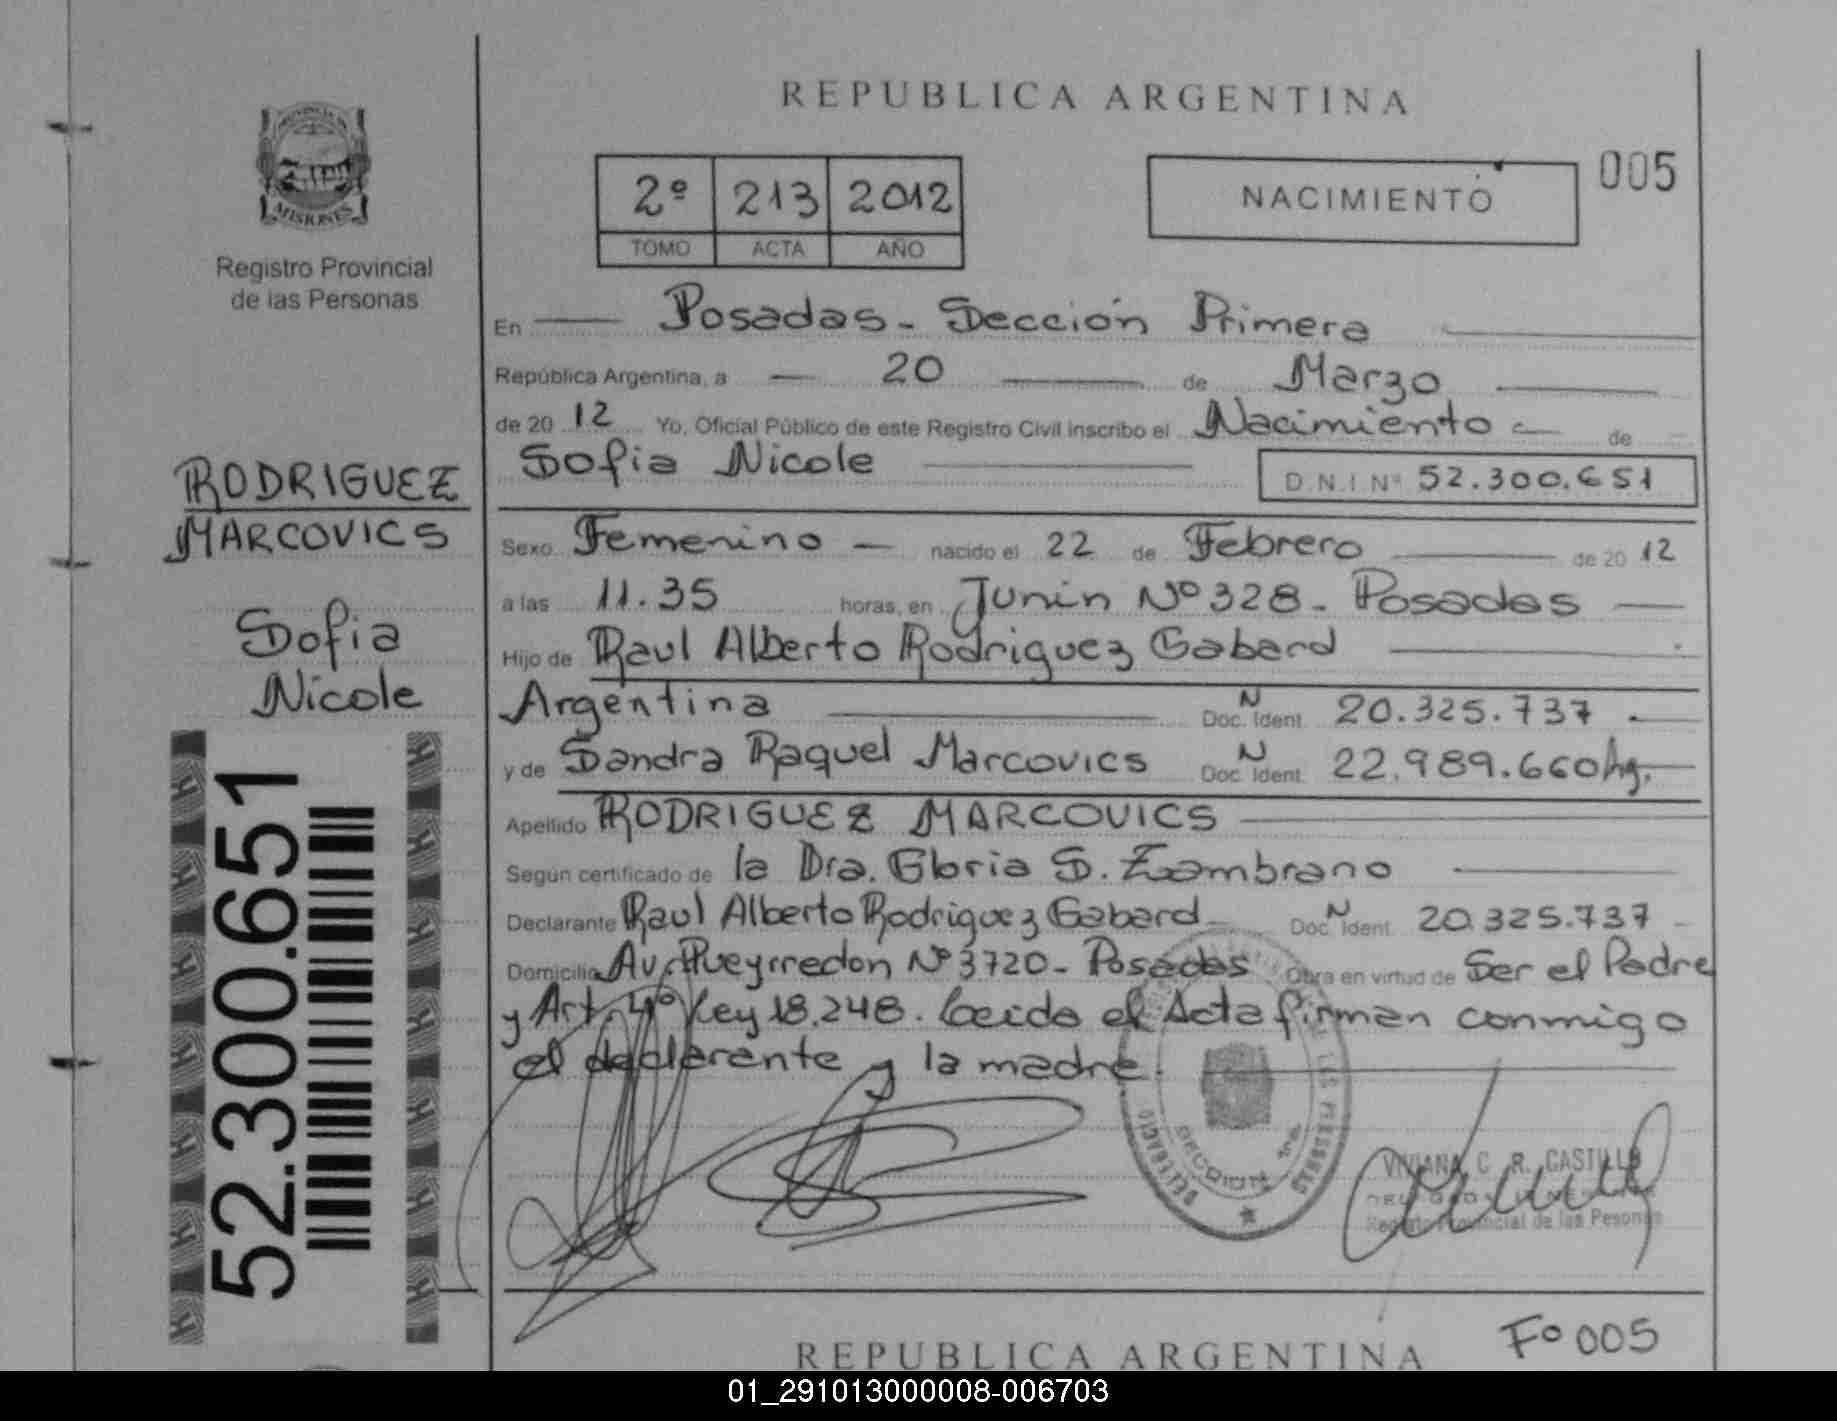 REPUBLICA ARGENTINA
PROVINCIA DE
MISIONES
Registro Provincial
de las Personas
2º 213 2012
TOMO ACTA AÑO
NACIMIENTO
005
En Posadas - Sección Primera
República Argentina, a 20 de Marzo
de 20 12 Yo, Oficial Público de este Registro Civil inscribo el Nacimiento de
Sofia Nicole D.N.I Nº 52.300.651
RODRIGUEZ
MARCOVICS
Sofia
Nicole
52.300.651
Sexo Femenino nacido el 22 de Febrero de 20 12
a las 11.35 horas, en Junin Nº 328 - Posadas
Hijo de Raul Alberto Rodriguez Gabard
Argentina N Doc. Ident. 20.325.737
y de Sandra Raquel Marcovics N Doc. Ident. 22.989.660
Apellido RODRIGUEZ MARCOVICS
Según certificado de la Dra. Gloria S. Zambrano
Declarante Raul Alberto Rodriguez Gabard N Doc. Ident. 20.325.737
Domicilio Av. Pueyrredon Nº 3720 - Posadas Obra en virtud de Ser el Padre
y Art. 4º Ley 18.248. Leida el Acta firman conmigo
el declarante y la madre.
VIVIANA C. R. CASTILLO
Registro Provincial de las Pesonas
Fº 005
REPUBLICA ARGENTINA
01_291013000008-006703